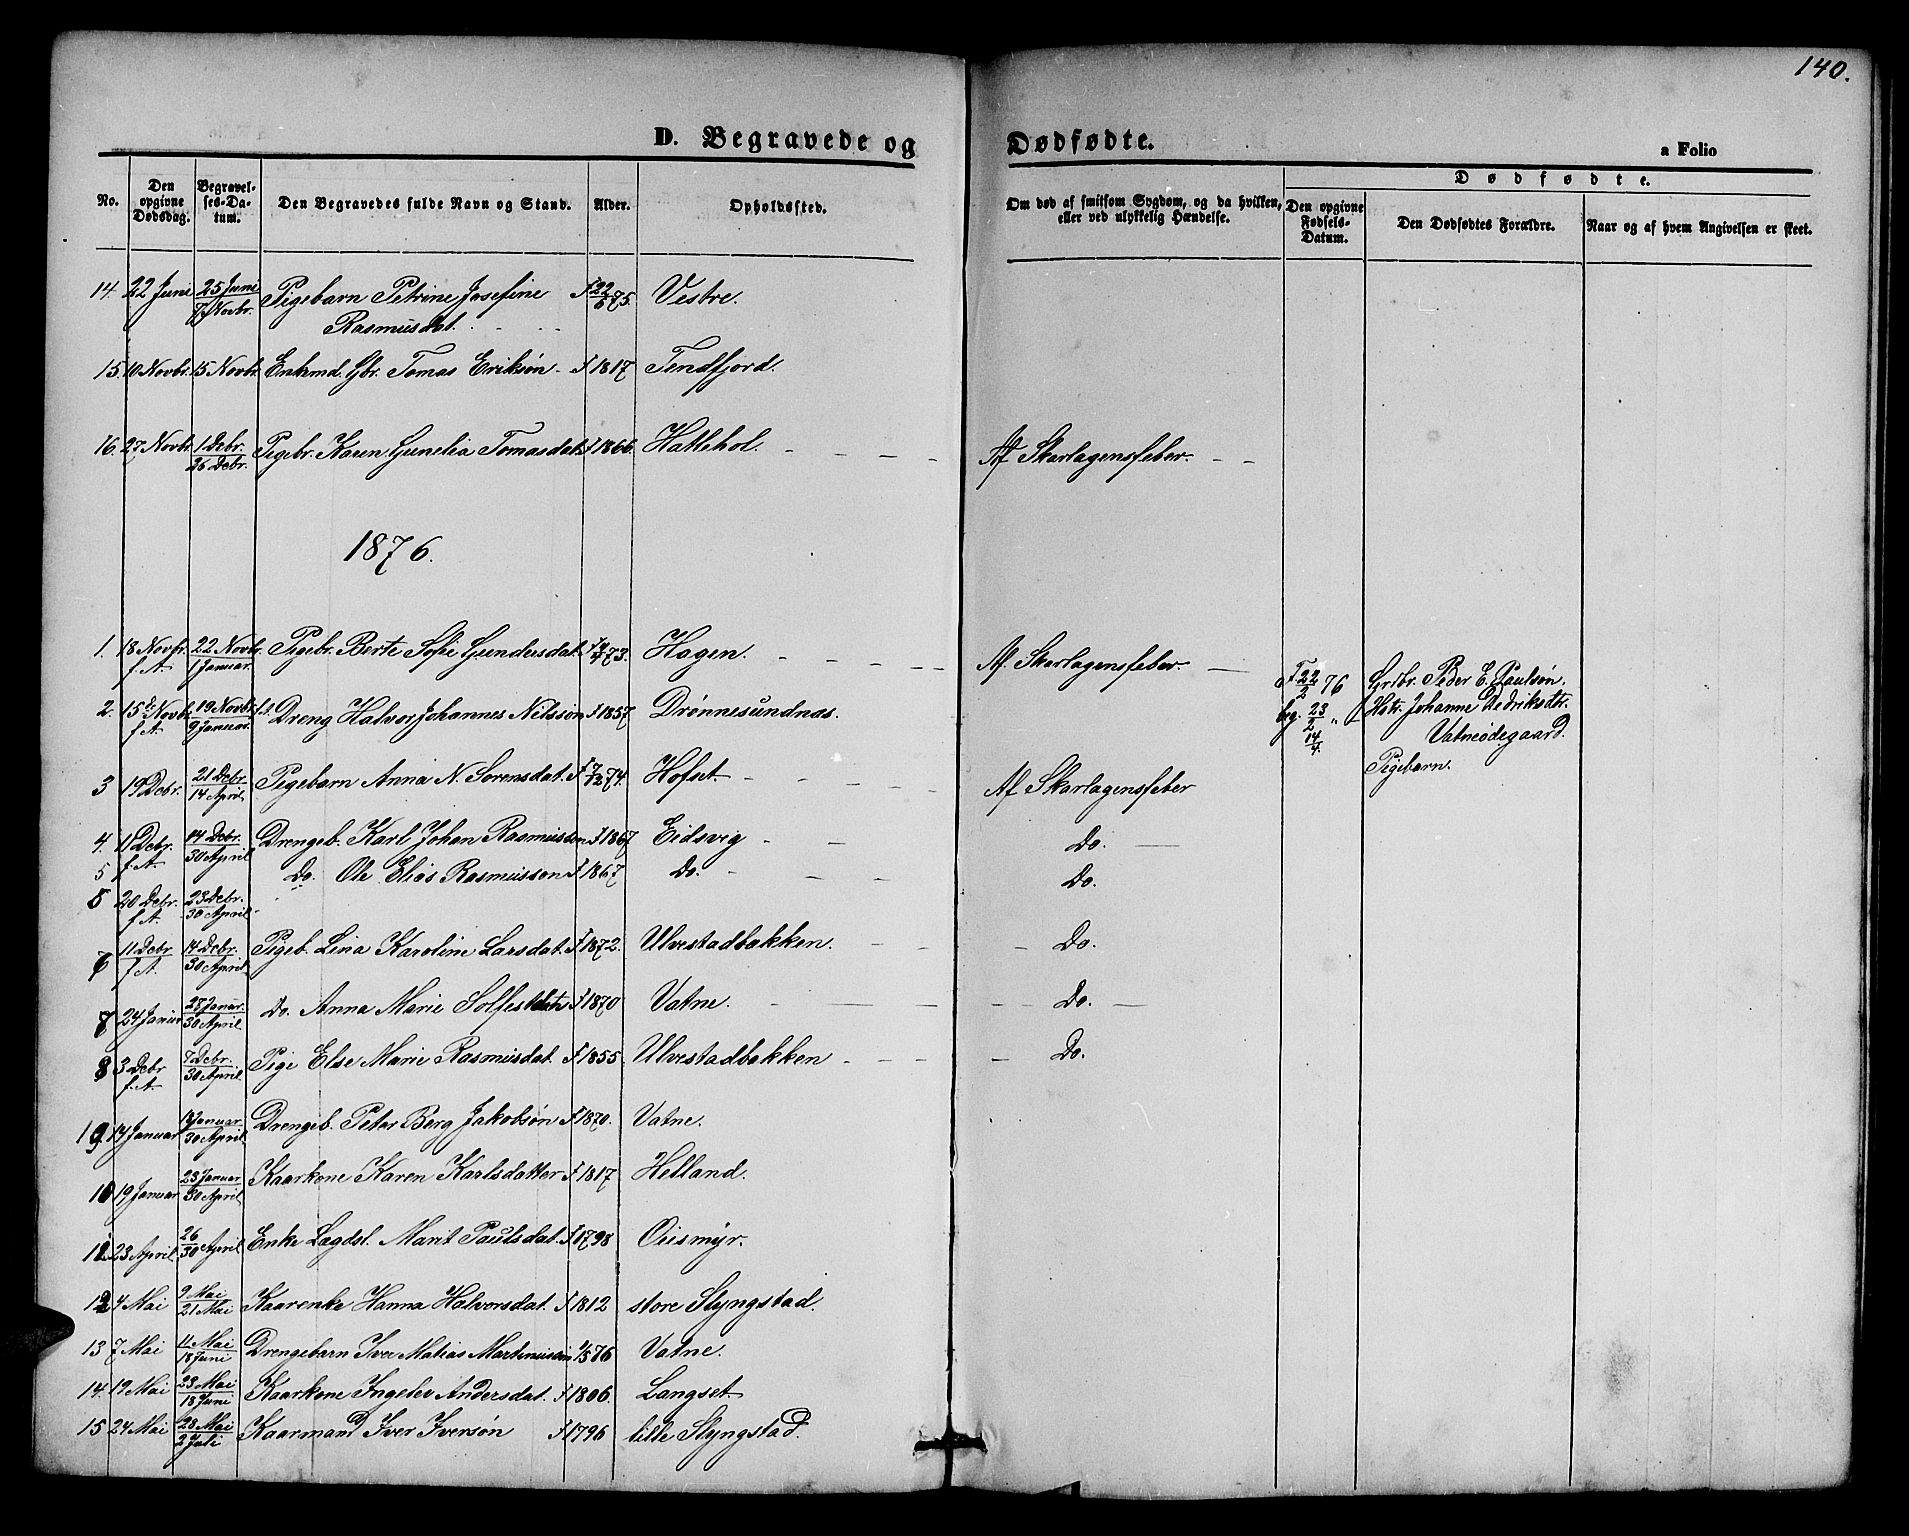 140.
D. Begravede og Dødfødte.
a Folio
No.
Den opgivne Dødsdag.
Begravelses-Datum.
Den Begravedes fulde Navn og Stand.
Alder.
Opholdssted.
Om død af smitsom Sygdom, og da hvilken, eller ved ulykkelig Hændelse.
Dødfødte.
Den opgivne Fødsels-Datum.
Den Dødfødtes Forældre.
Naar og af hvem Angivelsen er skeet.
14. 22 Juni 25 Juni / 7 Novbr. Pigebarn Petrine Josefine F 22/6 75. Vestre.
Rasmusdat.
15. 10 Novbr. 15 Novbr. Enkmd. Gbr. Tomas Eriksøn F 1817 Tendfjord.
16. 27 Novbr. 1 Debr. / 26 Debr. Pigebr. Karen Gunelia Tomasdat. F 1866. Hattehol. Af Skarlagensfeber.
1876.
1. 18 Novbr. f. A. 22 Novbr. / 1 Januar. Pigebr. Berte Sofie Gundersdat. 73. Hagen. Af Skarlagensfeber.
2. 15 Novbr. f. A. 19 Novbr. / 9 Januar. Dreng Halvor Johannes Nilssøn F 1857 Drønnesundnas.
F 22/2 76 Grdbr. Peder E. Paulsøn.
beg. 23/2 " Hstr. Johanne Dedriksdtr.
14/4. Vatneødegaard.
Pigebarn.
3 19 Debr. 21 Debr. / 14 April Pigebarn Anna N. Sørensdat. F 7/12 74. Hofset. Af Skarlagensfeber
4. 11 Debr. f. A. 14 Debr. / 30 April Drengeb. Karl Johan Rasmussøn F 1867 Eidsvig Do.
5 Do. Ole Elias Rasmusson F 1867 Do. Do.
5 20 Debr. f. A. 23 Debr. / 30 April
6 11 Debr f. A. 14 Debr. / 30 April Pigeb. Lina Karoline Larsdat. F 1872. Ulvestadbakken. Do.
7 24 Januar 28 Januar. / 30 April. Do. Anna Marie F 1870 Vatne. Do.
8 3 Debr f. A. 7 Debr. / 30 April. Pige Else Marie Rasmusdat. F 1855. Ulvestadbakken Do.
9. 14 Januar 18 Januar / 30 April Drengeb. Peter Berg Jakobsøn F 1870. Vatne.
10 19 Januar 23 Januar / 30 April Kaarkone Karen Karlsdatter F 1817 Helland.
23 April 26/30 April Enke Lægdsl. Marit Paulsdat. F 1798 Oiesmyr.
12 4 Mai 9 Mai / 21 Mai Kaarenke Hanna Halvorsdat. F 1812 store Slyngstad.
13 7 Mai 11 Mai / 18 Juni Drengebarn Iver Matias Martinussøn 1/5 76 Vatne.
14. 19 Mai 23 Mai / 18 Juni Kaarkone Ingelev Andersdat. F 1806. Langset.
15 24 Mai 28 Mai / 2 Juli Kaarmand Iver Iversøn F 1796 lille Slyngstad.